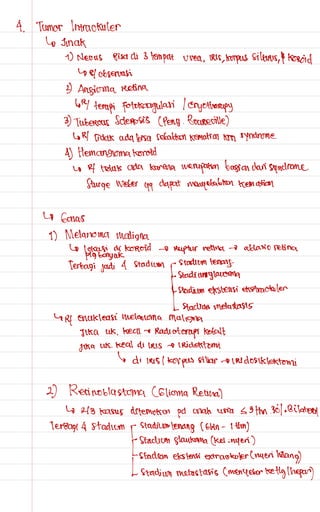 4. Tumor Intraokuler
↳ Jinak
1) Nevus bisa di 3 tempat uvea, iris, korpus siliaris, & koroid
↳ R/ observasi
2) Angioma Retina
↳ R/ terapi fotokoagulasi / cryotherapy
3) Tuberous Sclerosis (Peny. Bourneville)
↳ R/ tidak ada bisa sebabkan kematian krn syndrome
4) Hemangioma koroid
↳ R/ tidak ada karena merupakan bagian dari syndrome
Sturge Weber yg dapat menyebabkan kematian
↳ Ganas
1) Melanoma maligna
↳ lokasi di koroid → ruptur retina → ablasio retina
plg banyak
Terbagi jadi 4 stadium - Stadium tenang
- Stadium glaucoma
- Stadium ekstensi ekstraokuler
- Stadium metastasis
↳ R/ enukleasi melanoma maligna
Jika uk. kecil → Radioterapi kobalt
Jika uk. kecil di iris → iridektomi
↳ di iris / korpus siliar → iridosiklektomi
2) Retinoblastoma (Glioma Retina)
↳ 2/3 kasus ditemukan pd anak usia ≤ 3 thn 30% Bilateral
Terbagi 4 stadium - Stadium tenang (6bln - 1 thn)
- Stadium glaukoma (kel. nyeri)
- Stadium ekstensi extraokuler (nyeri hilang)
- Stadium metastasis (menyebar ke tlg/hepar)